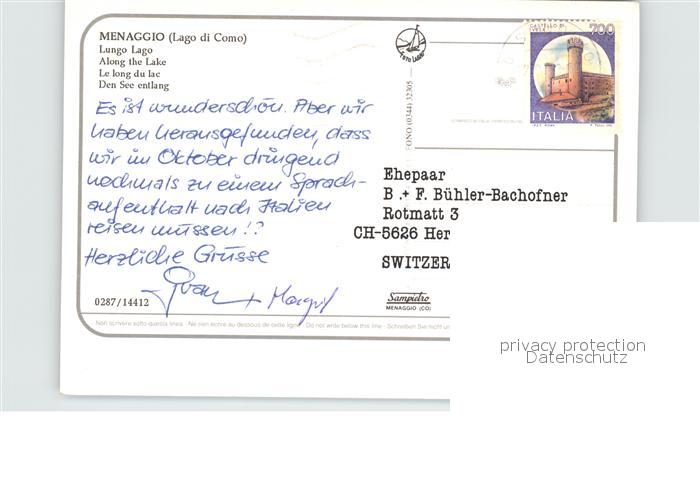 MENAGGIO (Lago di Como)
Lungo Lago
Along the Lake
Le long du lac
Den See entlang
Es ist wunderschön. Aber wir
haben herausgefunden, dass
wir im Oktober dringend
nochmals zu einem Sprach-
aufenthalt nach Italien
reisen müssen!?
Herzliche Grüsse
+ Margrit
0287/14412
Non scrivere sotto questa linea · Ne rien écrire au dessous de cette ligne · Do not write below this line · Schreiben Sie nicht un
FOTO LARIO
FONO (0344) 32305
700
ITALIA
Ehepaar
B + F. Bühler-Bachofner
Rotmatt 3
CH-5626 Her
SWITZER
Sampietro
MENAGGIO (CO)
privacy protection
Datenschutz